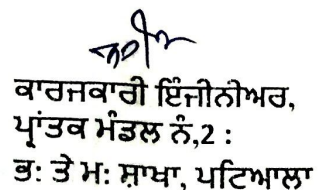 ਕਾਰਜਕਾਰੀ ਇੰਜੀਨੀਅਰ,
ਪ੍ਰਾਂਤਕ ਮੰਡਲ ਨੰ,2 :
ਭ: ਤੇ ਮ: ਸ਼ਾਖਾ, ਪਟਿਆਲਾ